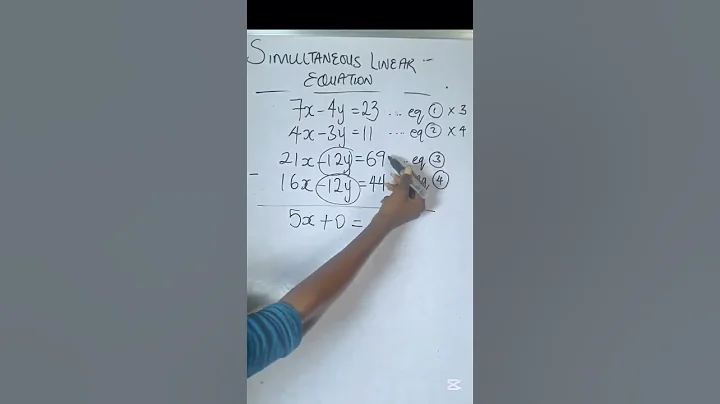 SIMULTANEOUS LINEAR -
EQUATION
7x - 4y = 23 ... eq ① × 3
4x - 3y = 11 ... eq ② × 4
21x - 12y = 69 ... eq ③
- 16x - 12y = 44 ④
5x + 0 =